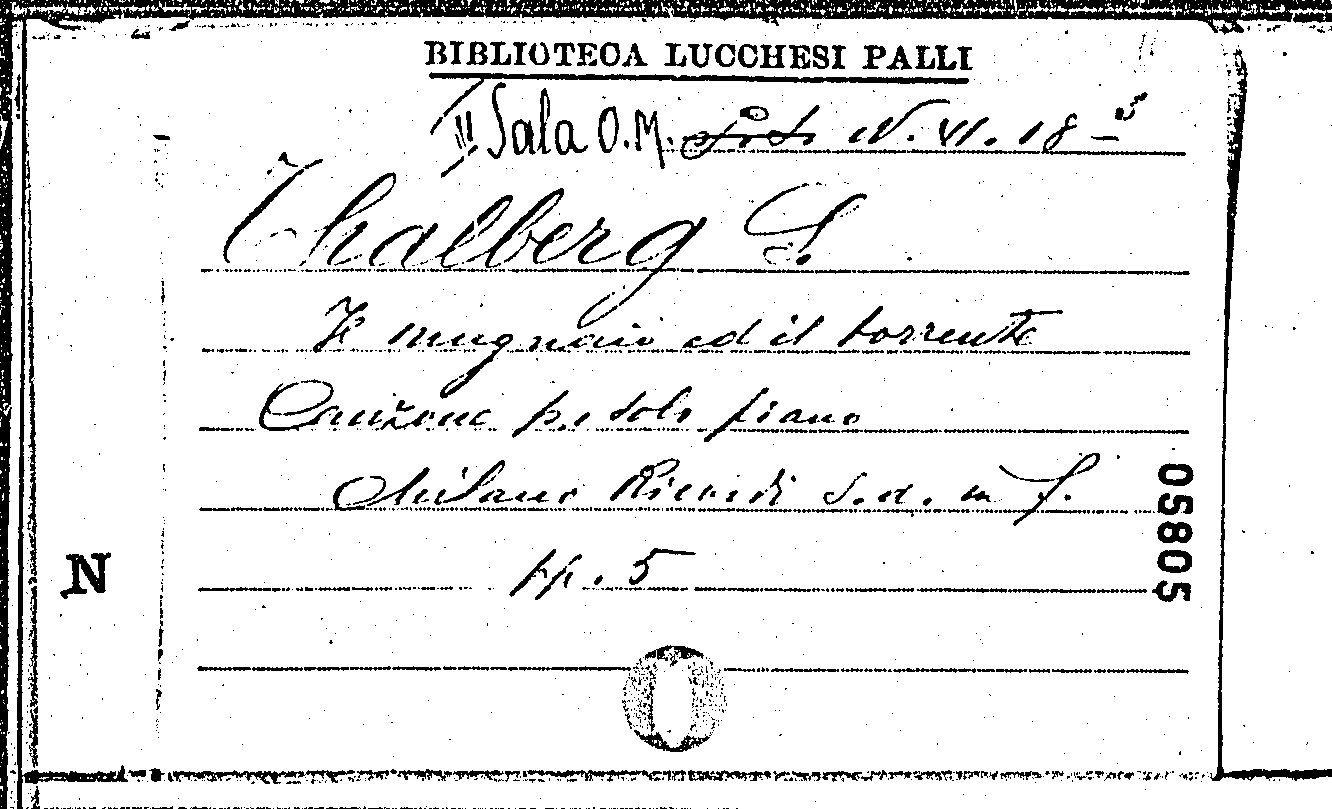 BIBLIOTECA LUCCHESI PALLI
II Sala O.M. N. VI. 18 - 5
Thalberg S.
Il mugnaio ed il torrente
Canzone p. solo piano
Milano Ricordi s.d. in f.
pp. 5
05805
N